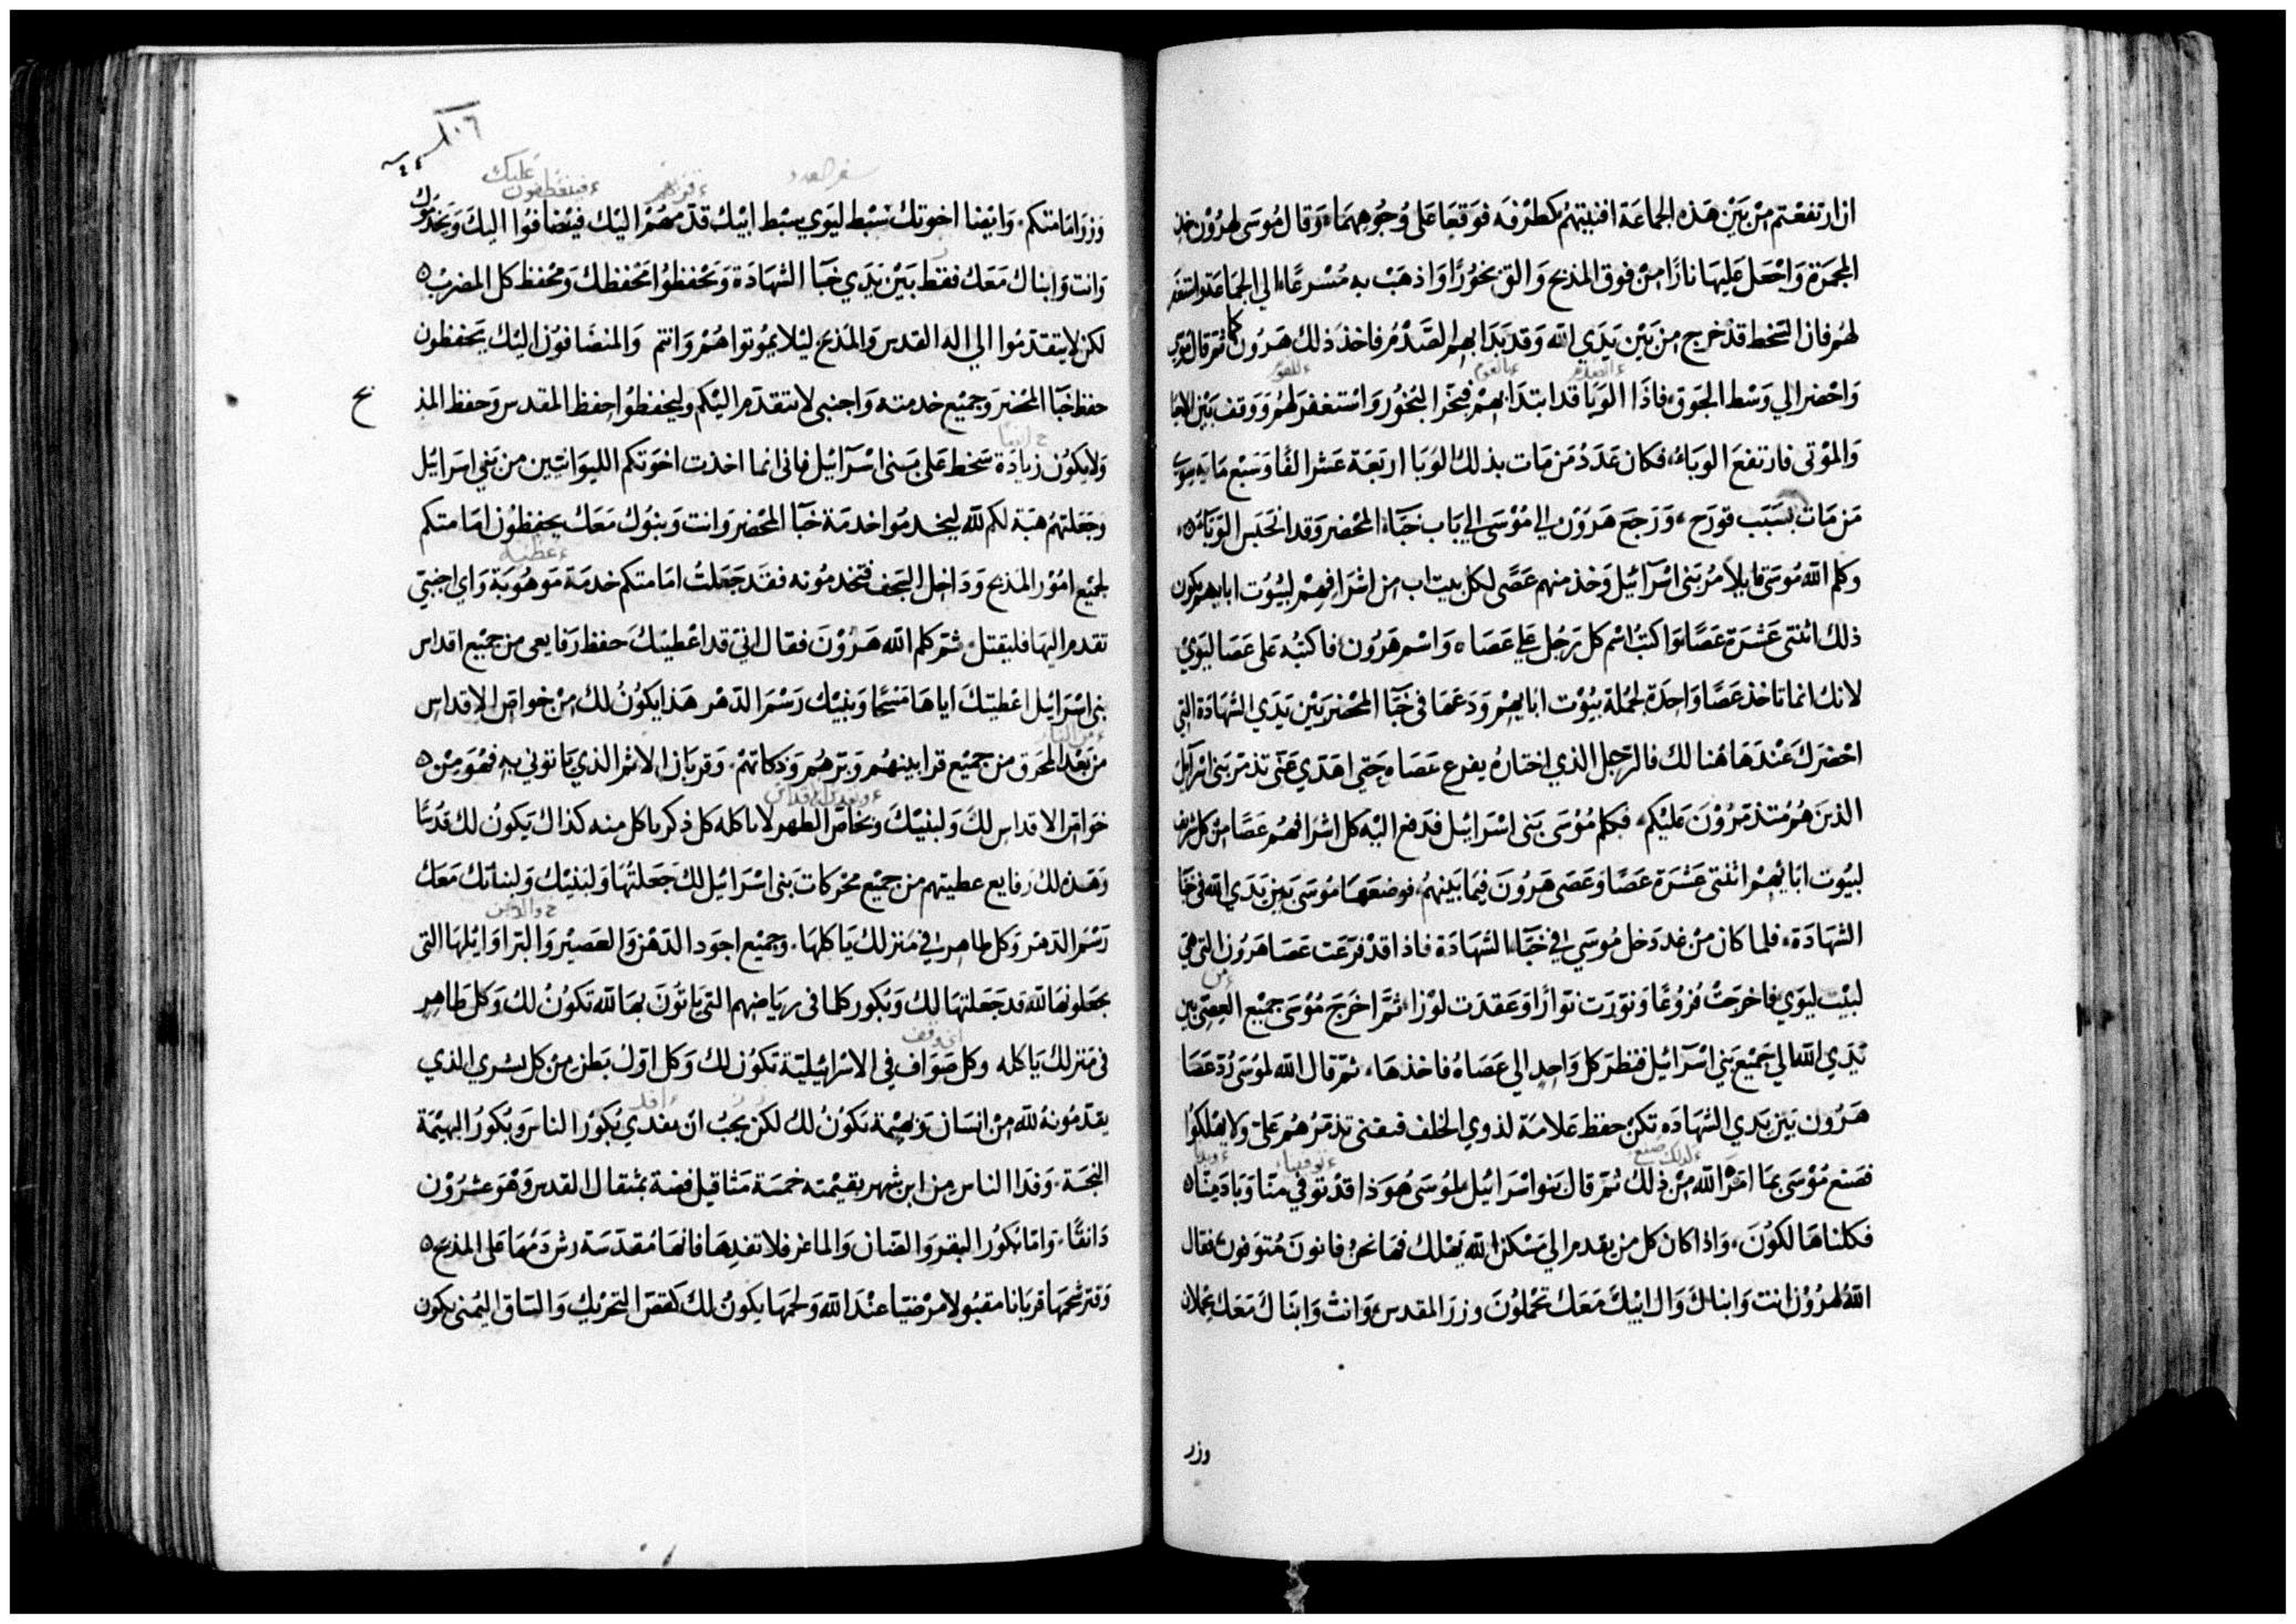 ان ارتفعتم من بين هذه الجماعة افنيتهم كطرفه فوقعا على وجوههما وقال موسى لهرون خذ
المجمرة واجعل عليها نارا من فوق المذبح والق بخورا واذهب به مسرعا الى الجماعة واستغفر
لهم فان السخط قد خرج من بين يدي الله وقد بدا بهم الصدم فاخذ ذلك هرون كما قال موسى
واحضر الي وسط الجوق فاذا الوبا قد ابتدا بهم فبخر البخور واستغفر لهم ووقف بين الاحيا
والموتى فارتفع الوباء فكان عدد من مات بذلك الوبا اربعة عشر الفا وسبع مايه سوى
من مات بسبب قورح ورجع هرون الي موسى الي باب خباء المحضر وقد انحبس الوباء
وكلم الله موسى قايلا مر بنى اسرآئيل وخذ منهم عصى لكل بيت اب من اشرافهم لبيوت ابايهم يكون
ذلك اثنتى عشرة عصا واكتب اسم كل رجل علي عصاه واسم هرون فاكتبه على عصا ليوي
لانك انما تاخذ عصا واحدة لجملة بيوت ابايهم ودعها في خبا المحضر بين يدي الشهادة التي
احضرك عندها هنالك فالرجل الذي اختاره يفرع عصاه حتى اهدي عنى تذمر بنى اسرآئيل
الذين هم متذمرون عليكم فكلم موسى بنى اسرائيل فدفع اليه كل اشرافهم عصا من كل شريف
لبيوت ابائهم اثنتى عشرة عصا وعصى هرون فيما بينهم فوضعها موسى بين يدي الله في خبا
الشهادة فلما كان من غد دخل موسى الي خباء الشهادة فاذا قد فرعت عصا هرون التي هي
لبيت ليوي فاخرجت فروعا ونورت نوارا وعقدت لوزا ثم اخرج موسى جميع العصى من بين
يدي الله الي جميع بني اسرآئيل فنظر كل واحد الي عصاه فاخذها ثم قال الله لموسى رد عصا
هرون بين يدي الشهاده تكن حفظ علامة لذوي الخلف فيفنى تذمرهم علي ولا يهلكوا
فصنع موسى بما امره الله من ذلك ثم قال بنو اسرائيل لموسى هوذا قد توفي منا وباد منا
فكلنا هالكون واذا كان كل من يقدم الي مسكن الله يهلك فها نحن فانون متوفون فقال
الله لهرون انت وابناك وال ابيك معك تحملون وزر المقدس وانت وابناك معك تحملان
وزر
سفر العدد
وزر امامتكم وايضا اخوتك سبط ليوي سبط ابيك قدمهم اليك فينضافوا اليك ويخدموك
وانت وابناك معك فقط بين يدي خبا الشهادة ويحفظوا محفظك ومحفظ كل المضرب
لكن لا يتقدموا الي اله القدس والمذبح ليلا يموتوا هم وانتم والمنضافون اليك يحفظون
حفظ خبآ المحضر وجميع خدمته واجنبى لا يتقدم اليكم وليحفظوا حفظ المقدس وحفظ المذ بح
ولا يكون زيادة سخط على بنى اسرآئيل فانى انما اخذت اخوتكم الليوانيين من بني اسرائيل
وجعلتهم هبة لكم لله ليخدموا خدمة خبآ المحضر وانت وبنوك معك يحفظون امامتكم
لجميع امور المذبح وداخل السجف فتخدمونه فقد جعلت امامتكم خدمة موهوبة واي اجنبي
تقدم اليها فليقتل ثم كلم الله هرون فقال انى قد اعطيتك حفظ رفايعى من جميع اقداس
بنى اسرائيل اعطيتك اياها مسحا وبنيك رسم الدهر هذا يكون لك من خواص الاقداس
من بعد المحرق من جميع قرابينهم وبرهم وذكاتهم وقربان الاثم الذي ياتوني به فهو من
خواص الاقداس لك ولبنيك وبخاص الطهر لا ياكله كل ذكر ياكل منه كذاك يكون لك قدسا
وهذه لك رفايع عطيتهم من جميع محركات بنى اسرائيل لك جعلتها ولبنيك ولبناتك معك
رسم الدهر وكل طاهر في منزلك ياكلها وجميع اجود الدهن والعصير والبر اوائلها التى
يجعلونها لله قد جعلتها لك وبكور كلما فى رياضهم التى ياتون بها لله تكون لك وكل طاهر
فى منزلك ياكله وكل صواف في الاسرائيلية تكون لك وكل اول بطن من كل بشري الذي
يقدمونه لله من انسان وبهيمة تكون لك لكن يجب ان يفدي بكور الناس وبكور البهيمة
النجسة وفدا الناس من ابن شهر بقيمته خمسة مثاقيل فضة بمثقال القدس وهو عشرون
دانقا واما بكور البقر والضان والماعز فلا تفدها فانها مقدسة رش دمها على المذبح
وقتر شحمها قربانا مقبولا مرضيا عند الله ولحمها يكون لك كقص التحريك والساق اليمنى يكون